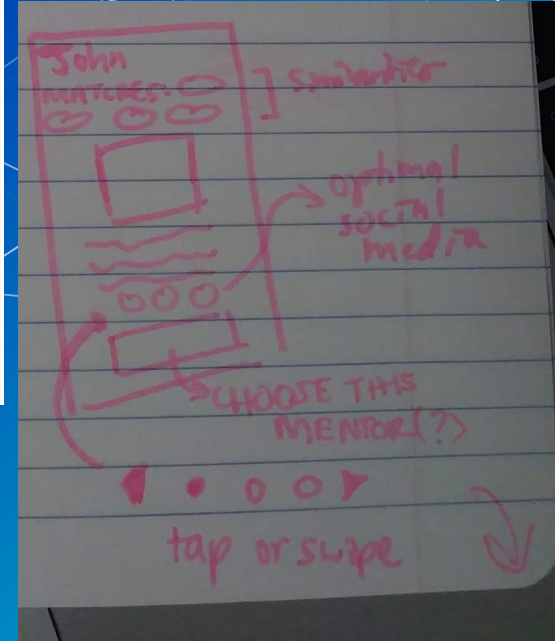 John
MATCHES:
Similarities
optional
social
media
CHOOSE THIS
MENTOR(?)
tap or swipe